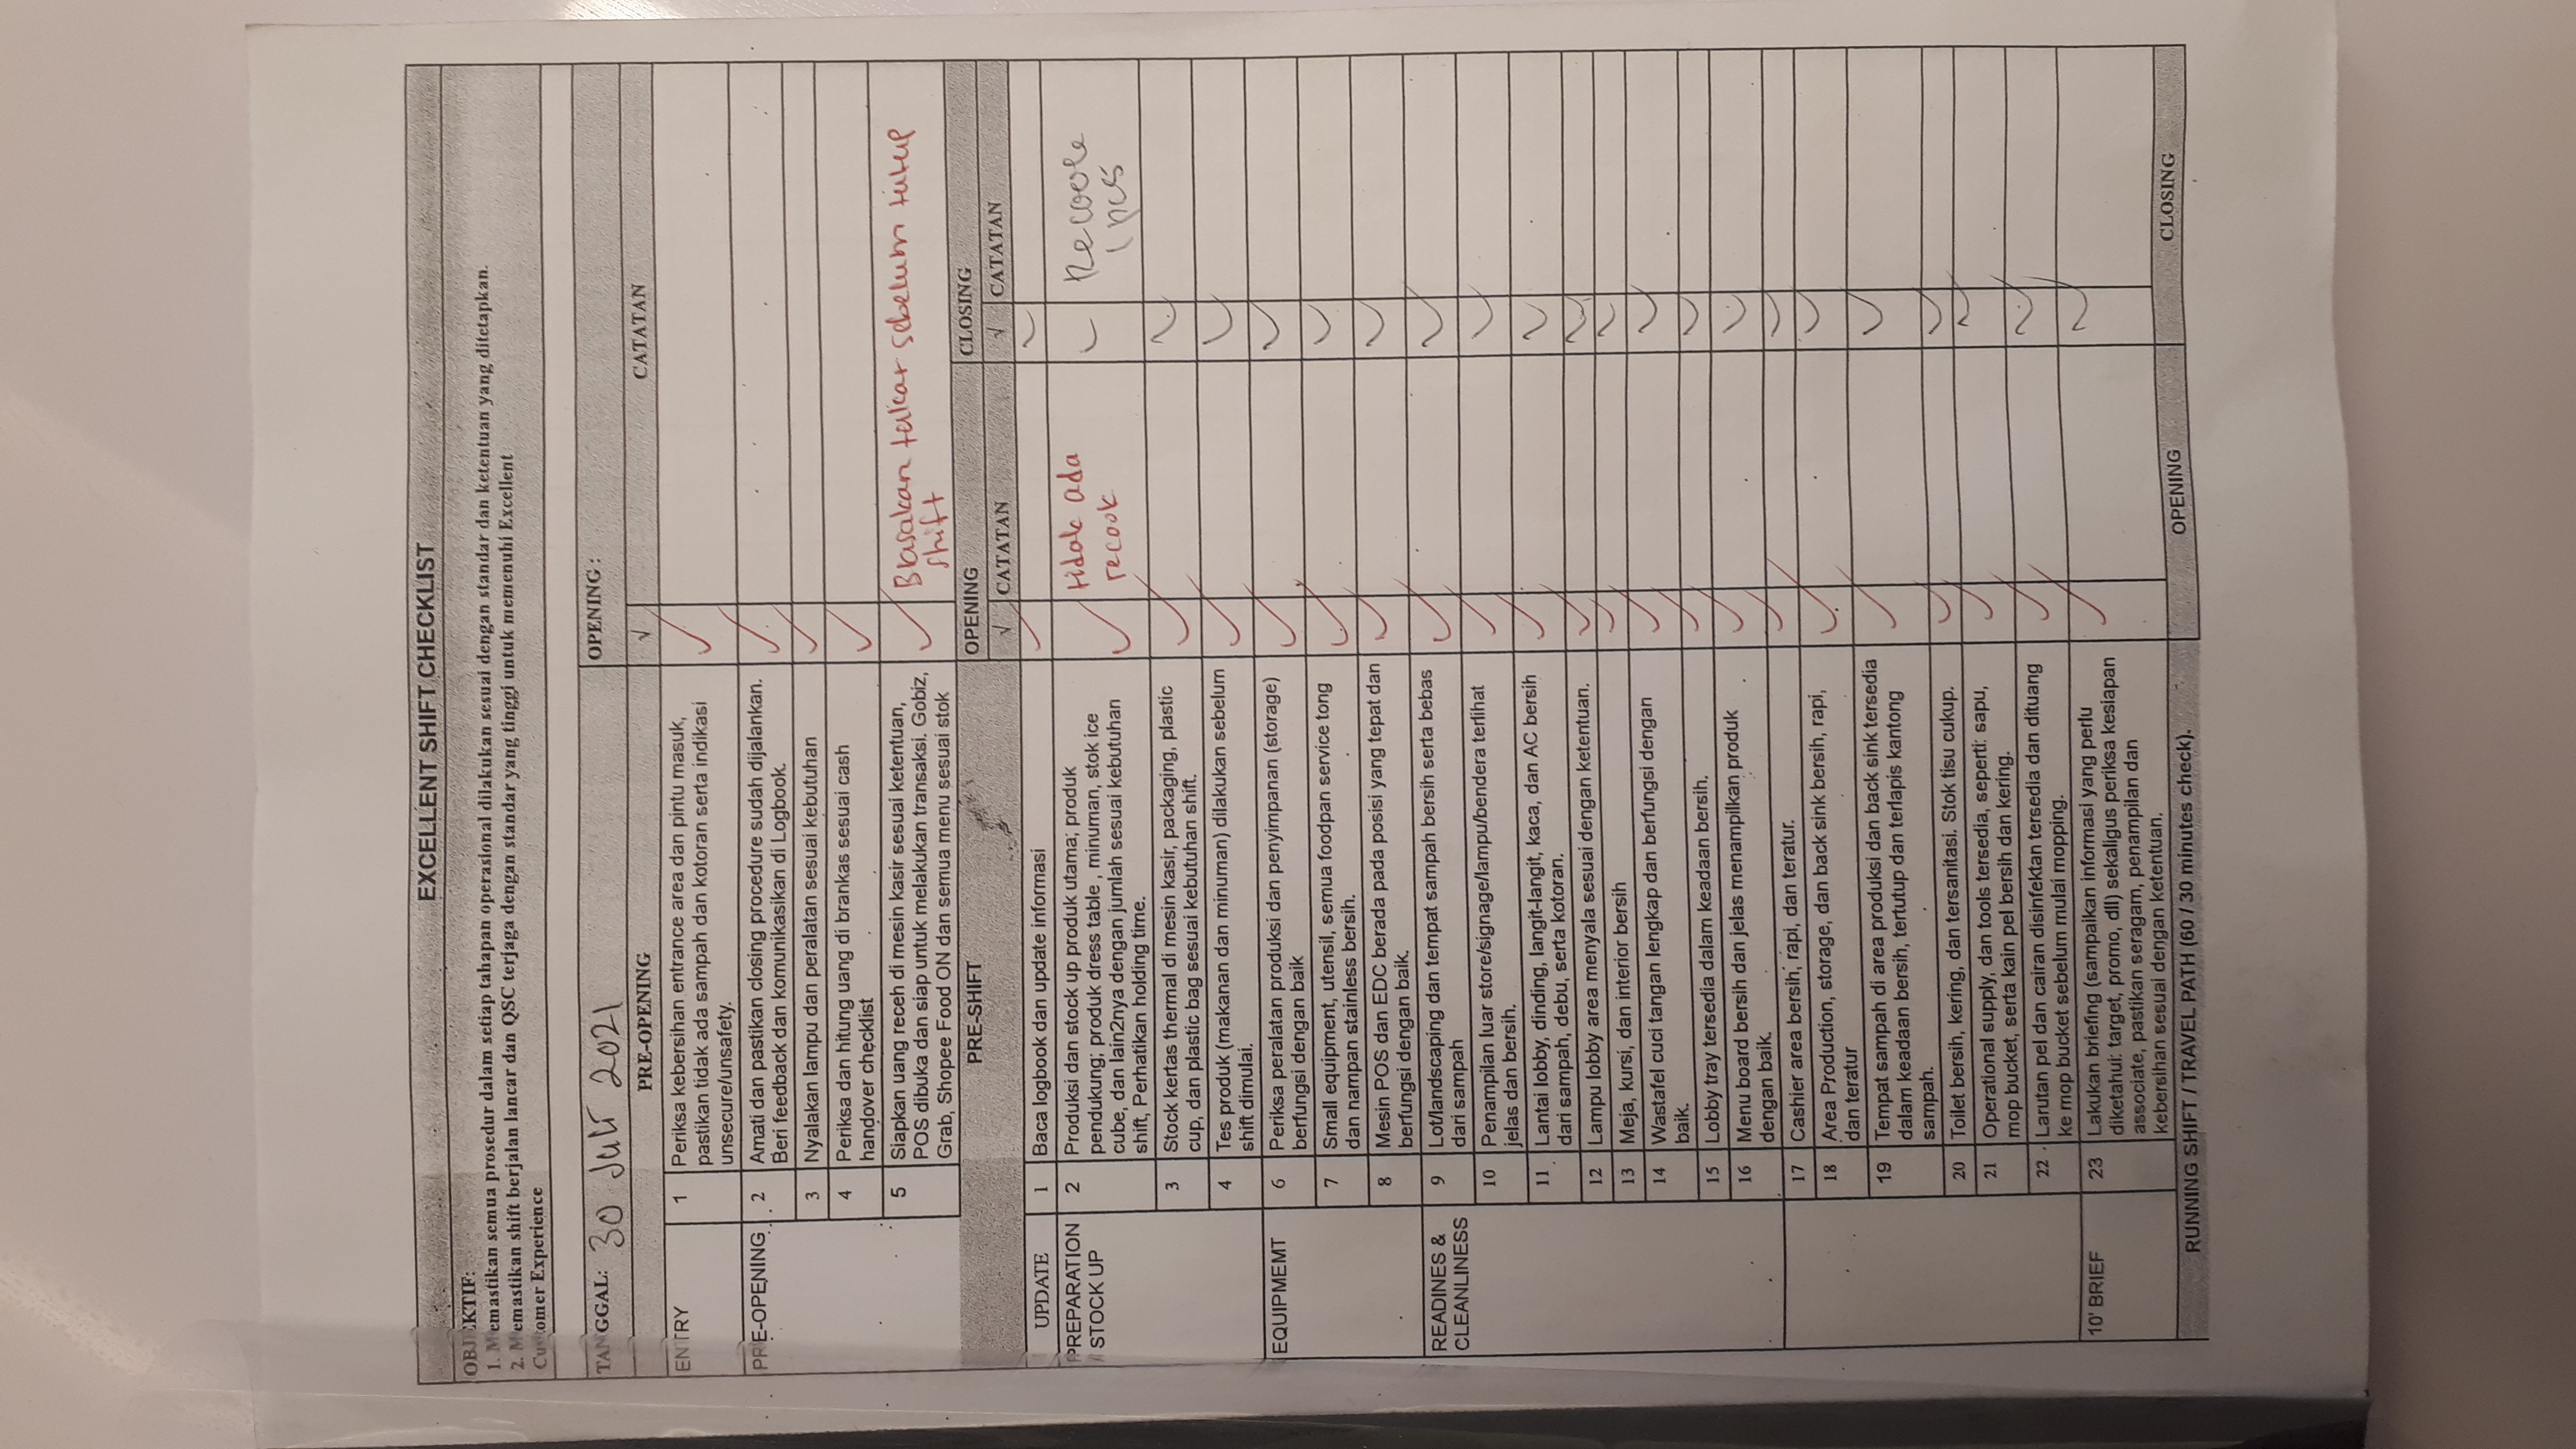 EXCELLENT SHIFT CHECKLIST
OBJEKTIF:
1. Memastikan semua prosedur dalam setiap tahapan operasional dilakukan sesuai dengan standar dan ketentuan yang ditetapkan.
2. Memastikan shift berjalan lancar dan QSC terjaga dengan standar yang tinggi untuk memenuhi Excellent
Customer Experience
TANGGAL: 30 Juli 2021 OPENING :
PRE-OPENING √ CATATAN
ENTRY 1 Periksa kebersihan entrance area dan pintu masuk,
pastikan tidak ada sampah dan kotoran serta indikasi
unsecure/unsafety.
PRE-OPENING 2 Amati dan pastikan closing procedure sudah dijalankan.
Beri feedback dan komunikasikan di Logbook.
3 Nyalakan lampu dan peralatan sesuai kebutuhan
4 Periksa dan hitung uang di brankas sesuai cash
handover checklist
5 Siapkan uang receh di mesin kasir sesuai ketentuan,
POS dibuka dan siap untuk melakukan transaksi. Gobiz,
Grab, Shopee Food ON dan semua menu sesuai stok
Biasakan tukar sebelum tutup
shift
PRE-SHIFT OPENING CLOSING
√ CATATAN √ CATATAN
UPDATE 1 Baca logbook dan update informasi
PREPARATION 2 Produksi dan stock up produk utama; produk
/ STOCK UP pendukung; produk dress table , minuman, stok ice
cube, dan lain2nya dengan jumlah sesuai kebutuhan
shift, Perhatikan holding time.
tidak ada
recook
1 pcs
3 Stock kertas thermal di mesin kasir, packaging, plastic
cup, dan plastic bag sesuai kebutuhan shift.
4 Tes produk (makanan dan minuman) dilakukan sebelum
shift dimulai.
EQUIPMEMT 6 Periksa peralatan produksi dan penyimpanan (storage)
berfungsi dengan baik
7 Small equipment, utensil, semua foodpan service tong
dan nampan stainless bersih.
8 Mesin POS dan EDC berada pada posisi yang tepat dan
berfungsi dengan baik.
READINES & 9 Lot/landscaping dan tempat sampah bersih serta bebas
CLEANLINESS dari sampah
10 Penampilan luar store/signage/lampu/bendera terlihat
jelas dan bersih.
11 Lantai lobby, dinding, langit-langit, kaca, dan AC bersih
dari sampah, debu, serta kotoran.
12 Lampu lobby area menyala sesuai dengan ketentuan.
13 Meja, kursi, dan interior bersih
14 Wastafel cuci tangan lengkap dan berfungsi dengan
baik.
15 Lobby tray tersedia dalam keadaan bersih.
16 Menu board bersih dan jelas menampilkan produk
dengan baik.
17 Cashier area bersih, rapi, dan teratur.
18 Area Production, storage, dan back sink bersih, rapi,
dan teratur
19 Tempat sampah di area produksi dan back sink tersedia
dalam keadaan bersih, tertutup dan terlapis kantong
sampah.
20 Toilet bersih, kering, dan tersanitasi. Stok tisu cukup.
21 Operational supply, dan tools tersedia, seperti: sapu,
mop bucket, serta kain pel bersih dan kering.
22 Larutan pel dan cairan disinfektan tersedia dan dituang
ke mop bucket sebelum mulai mopping.
10' BRIEF 23 Lakukan briefing (sampaikan informasi yang perlu
diketahui: target, promo, dll) sekaligus periksa kesiapan
associate, pastikan seragam, penampilan dan
kebersihan sesuai dengan ketentuan.
RUNNING SHIFT / TRAVEL PATH (60 / 30 minutes check). OPENING CLOSING